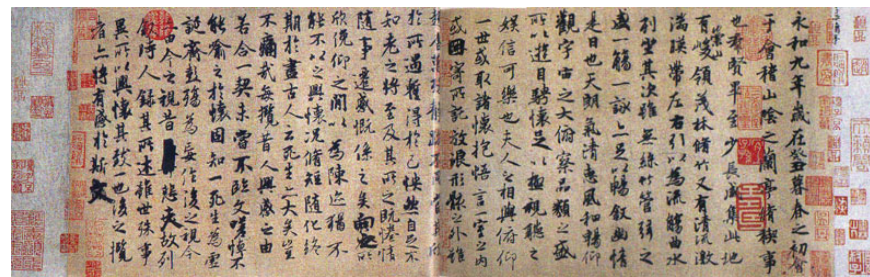 永和九年歲在癸丑暮春之初會
于會稽山陰之蘭亭脩稧事
也羣賢畢至少長咸集此地
有崇山峻領茂林脩竹又有清流激
湍暎帶左右引以為流觴曲水
列坐其次雖無絲竹管弦之
盛一觴一詠亦足以暢敘幽情
是日也天朗氣清惠風和暢仰
觀宇宙之大俯察品類之盛
所以遊目騁懷足以極視聽之
娛信可樂也夫人之相與俯仰
一世或取諸懷抱悟言一室之內
或因寄所託放浪形骸之外雖
於所遇蹔得於己怏然自足不
知老之將至及其所之既惓情
隨事遷感慨係之矣向之所
欣俛仰之閒以為陳迹猶不
能不以之興懷況脩短隨化終
期於盡古人云死生亦大矣豈
不痛哉每攬昔人興感之由
若合一契未嘗不臨文嗟悼不
能喻之於懷固知一死生為虛
誕齊彭殤為妄作後之視今
亦由今之視昔悲夫故列
敘時人錄其所述雖世殊事
異所以興懷其致一也後之攬
者亦將有感於斯文